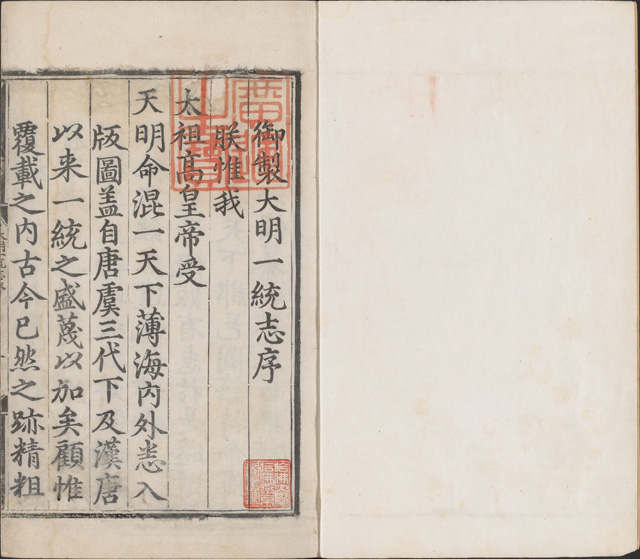 御製大明一統志序
朕惟我
太祖高皇帝受
天明命混一天下薄海内外悉入
版圖盖自唐虞三代下及漢唐
以来一統之盛蔑以加矣顧惟
覆載之内古今已然之跡精粗